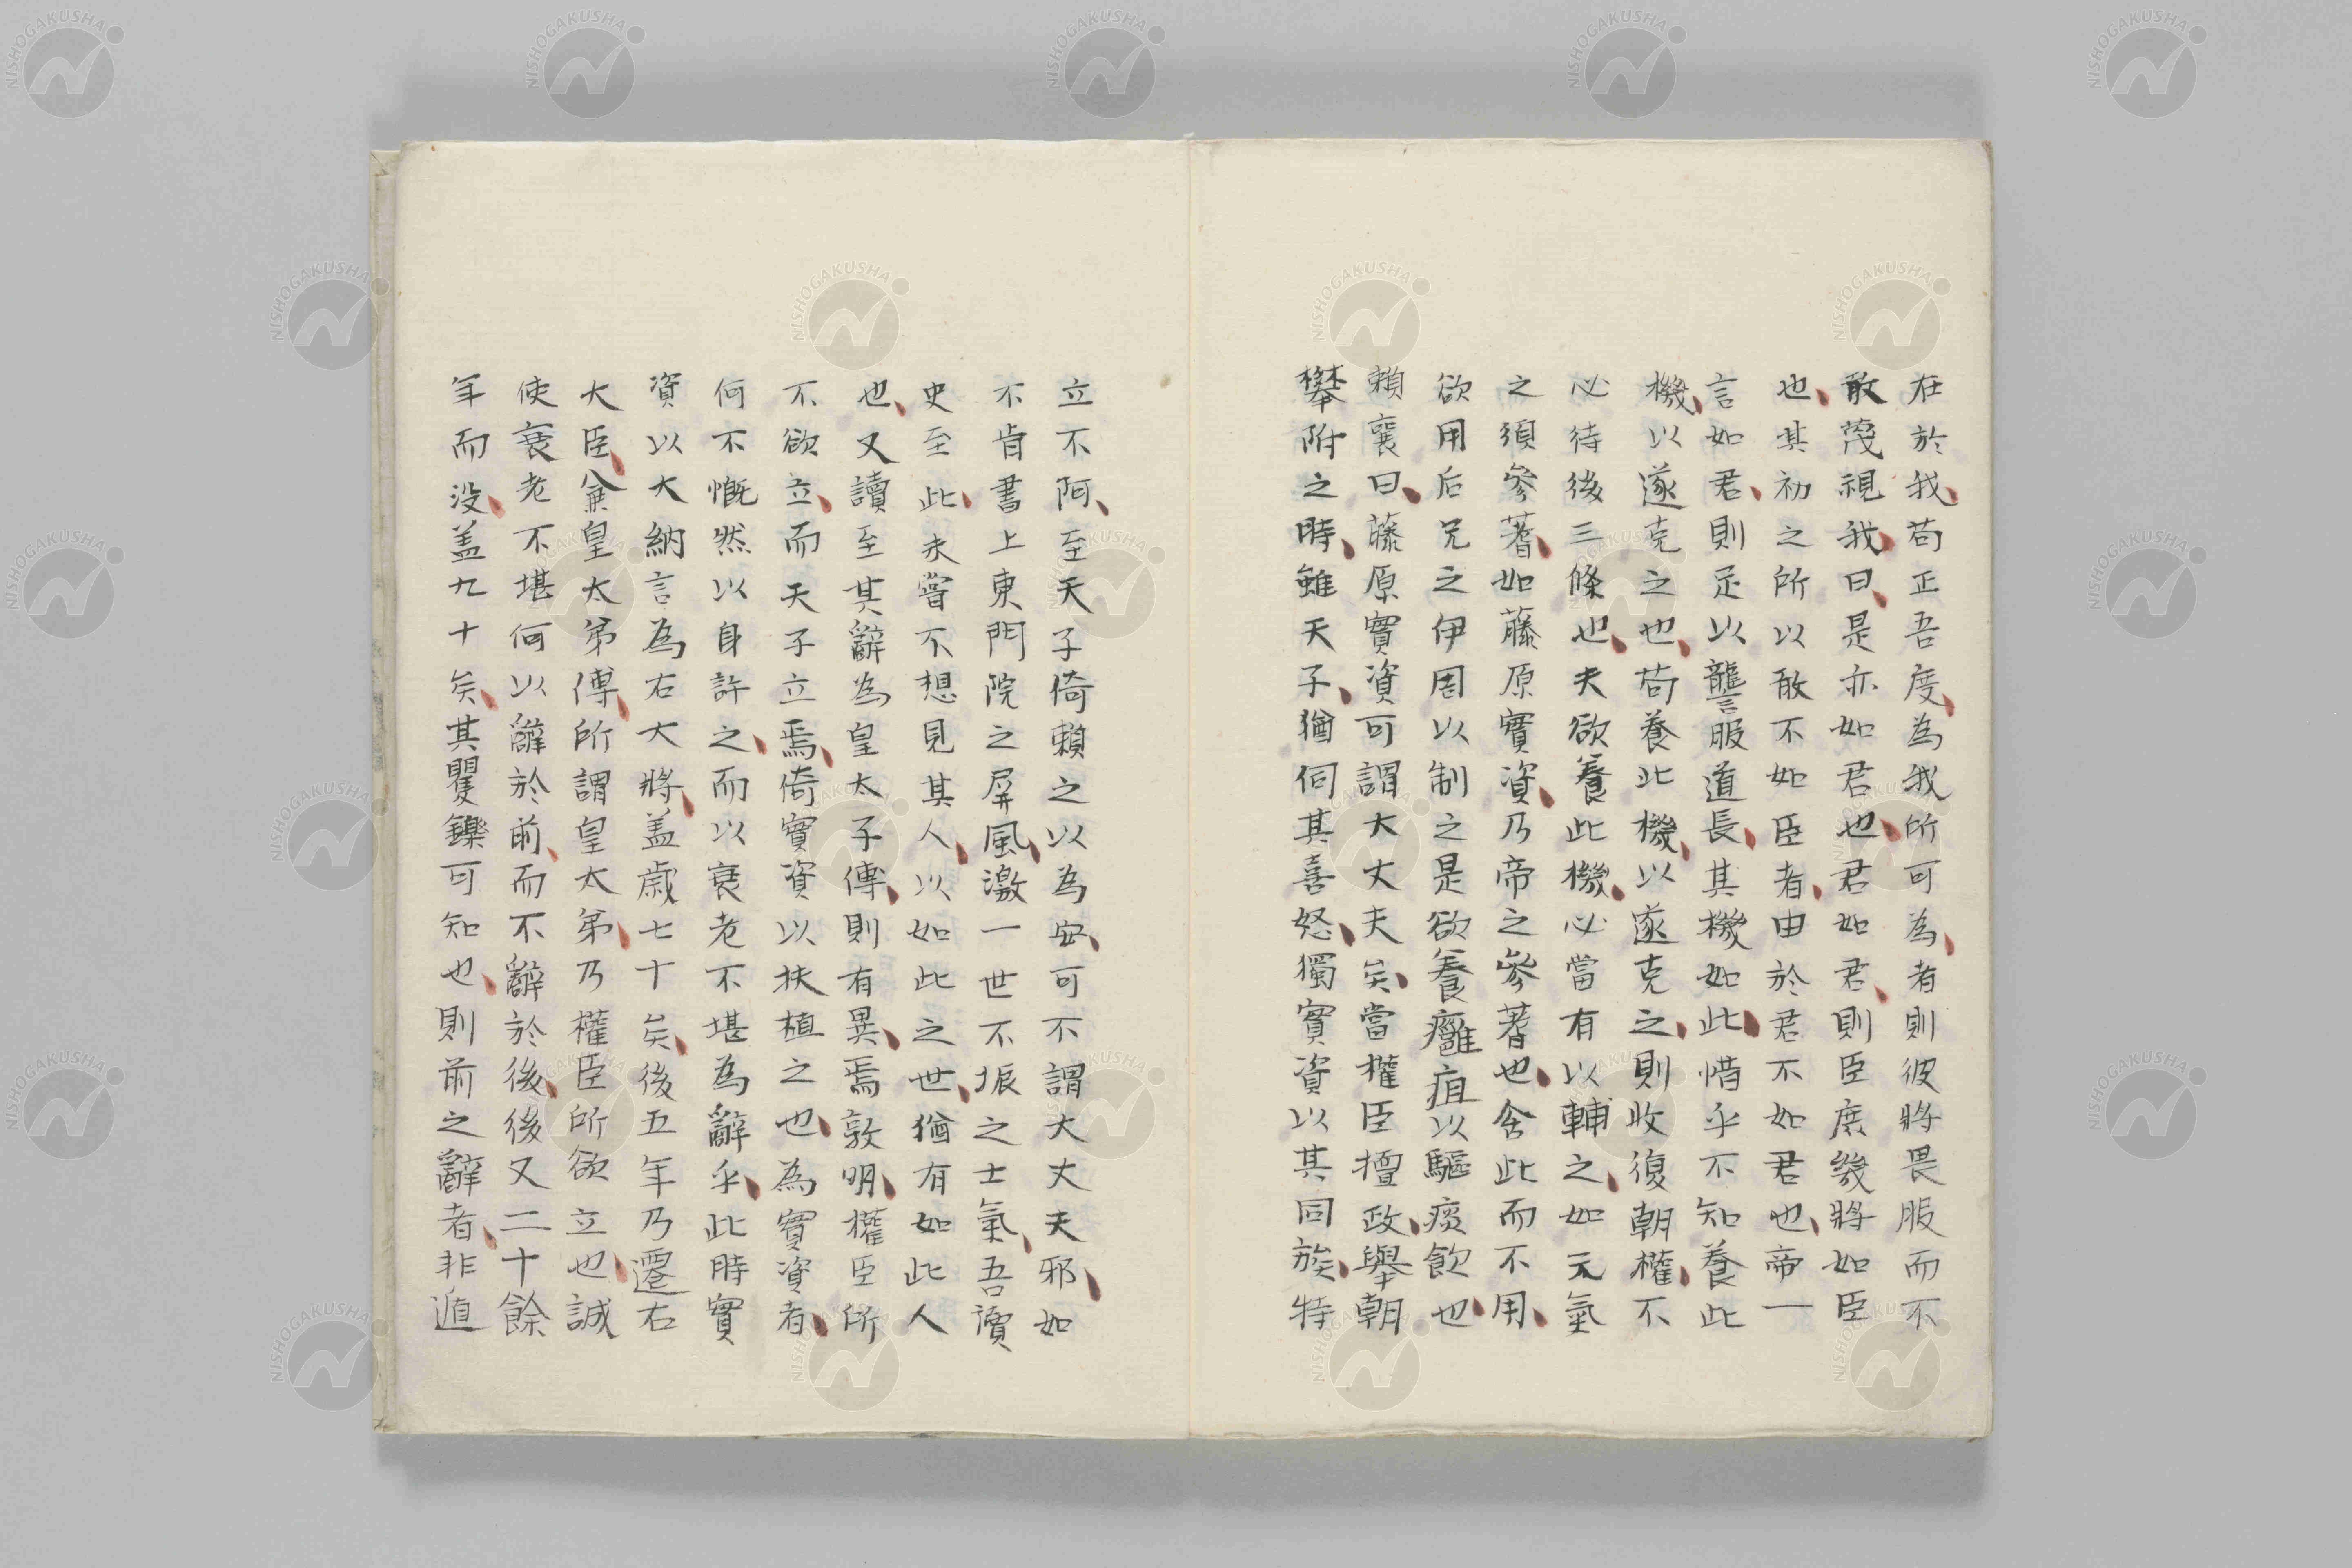 在於我、苟正吾度、為我所可為、者則彼將畏服而不
敢蔑視我、曰、是亦如君也、君如君、則臣庶幾將如臣
也、其初之所以敢不如臣者、由於君不如君也、帝一
言如君、則足以讋服道長、其機如此、惜乎不知養此
機、以遂克之也、苟養此機、以遂克之、則收復朝權、不
必待後三條也、夫欲養此機、必當有以輔之、如元氣
之須參蓍、如藤原實資、乃帝之參蓍也、舍此而不用、
欲用后兄之伊周以制之是欲養癰疽以驅痰飲也、
賴襄曰、藤原實資可謂大丈夫矣、當權臣擅政、舉朝
攀附之時、雖天子、猶伺其喜怒、獨實資以其同族、特
立不阿、至天子倚賴之以為安、可不謂大丈夫邪、如
不肯書上東門院之屏風、激一世不振之士氣、吾讀
史至此、未嘗不想見其人、以如此之世、猶有如此人
也、又讀至其辭為皇太子傳、則有異焉、敦明、權臣所
不欲立、而天子立焉、倚實資以扶植之也、為實資者、
何不慨然以身許之、而以衰老不堪為辭乎、此時實
資以大納言為右大將、盖歳七十矣、後五年乃遷右
大臣、兼皇太弟傳、所謂皇太弟、乃權臣所欲立也、誠
使衰老不堪何以辭於前、而不辭於後、後又二十餘
年而没、盖九十矣、其矍鑠可知也、則前之辭者、非遁